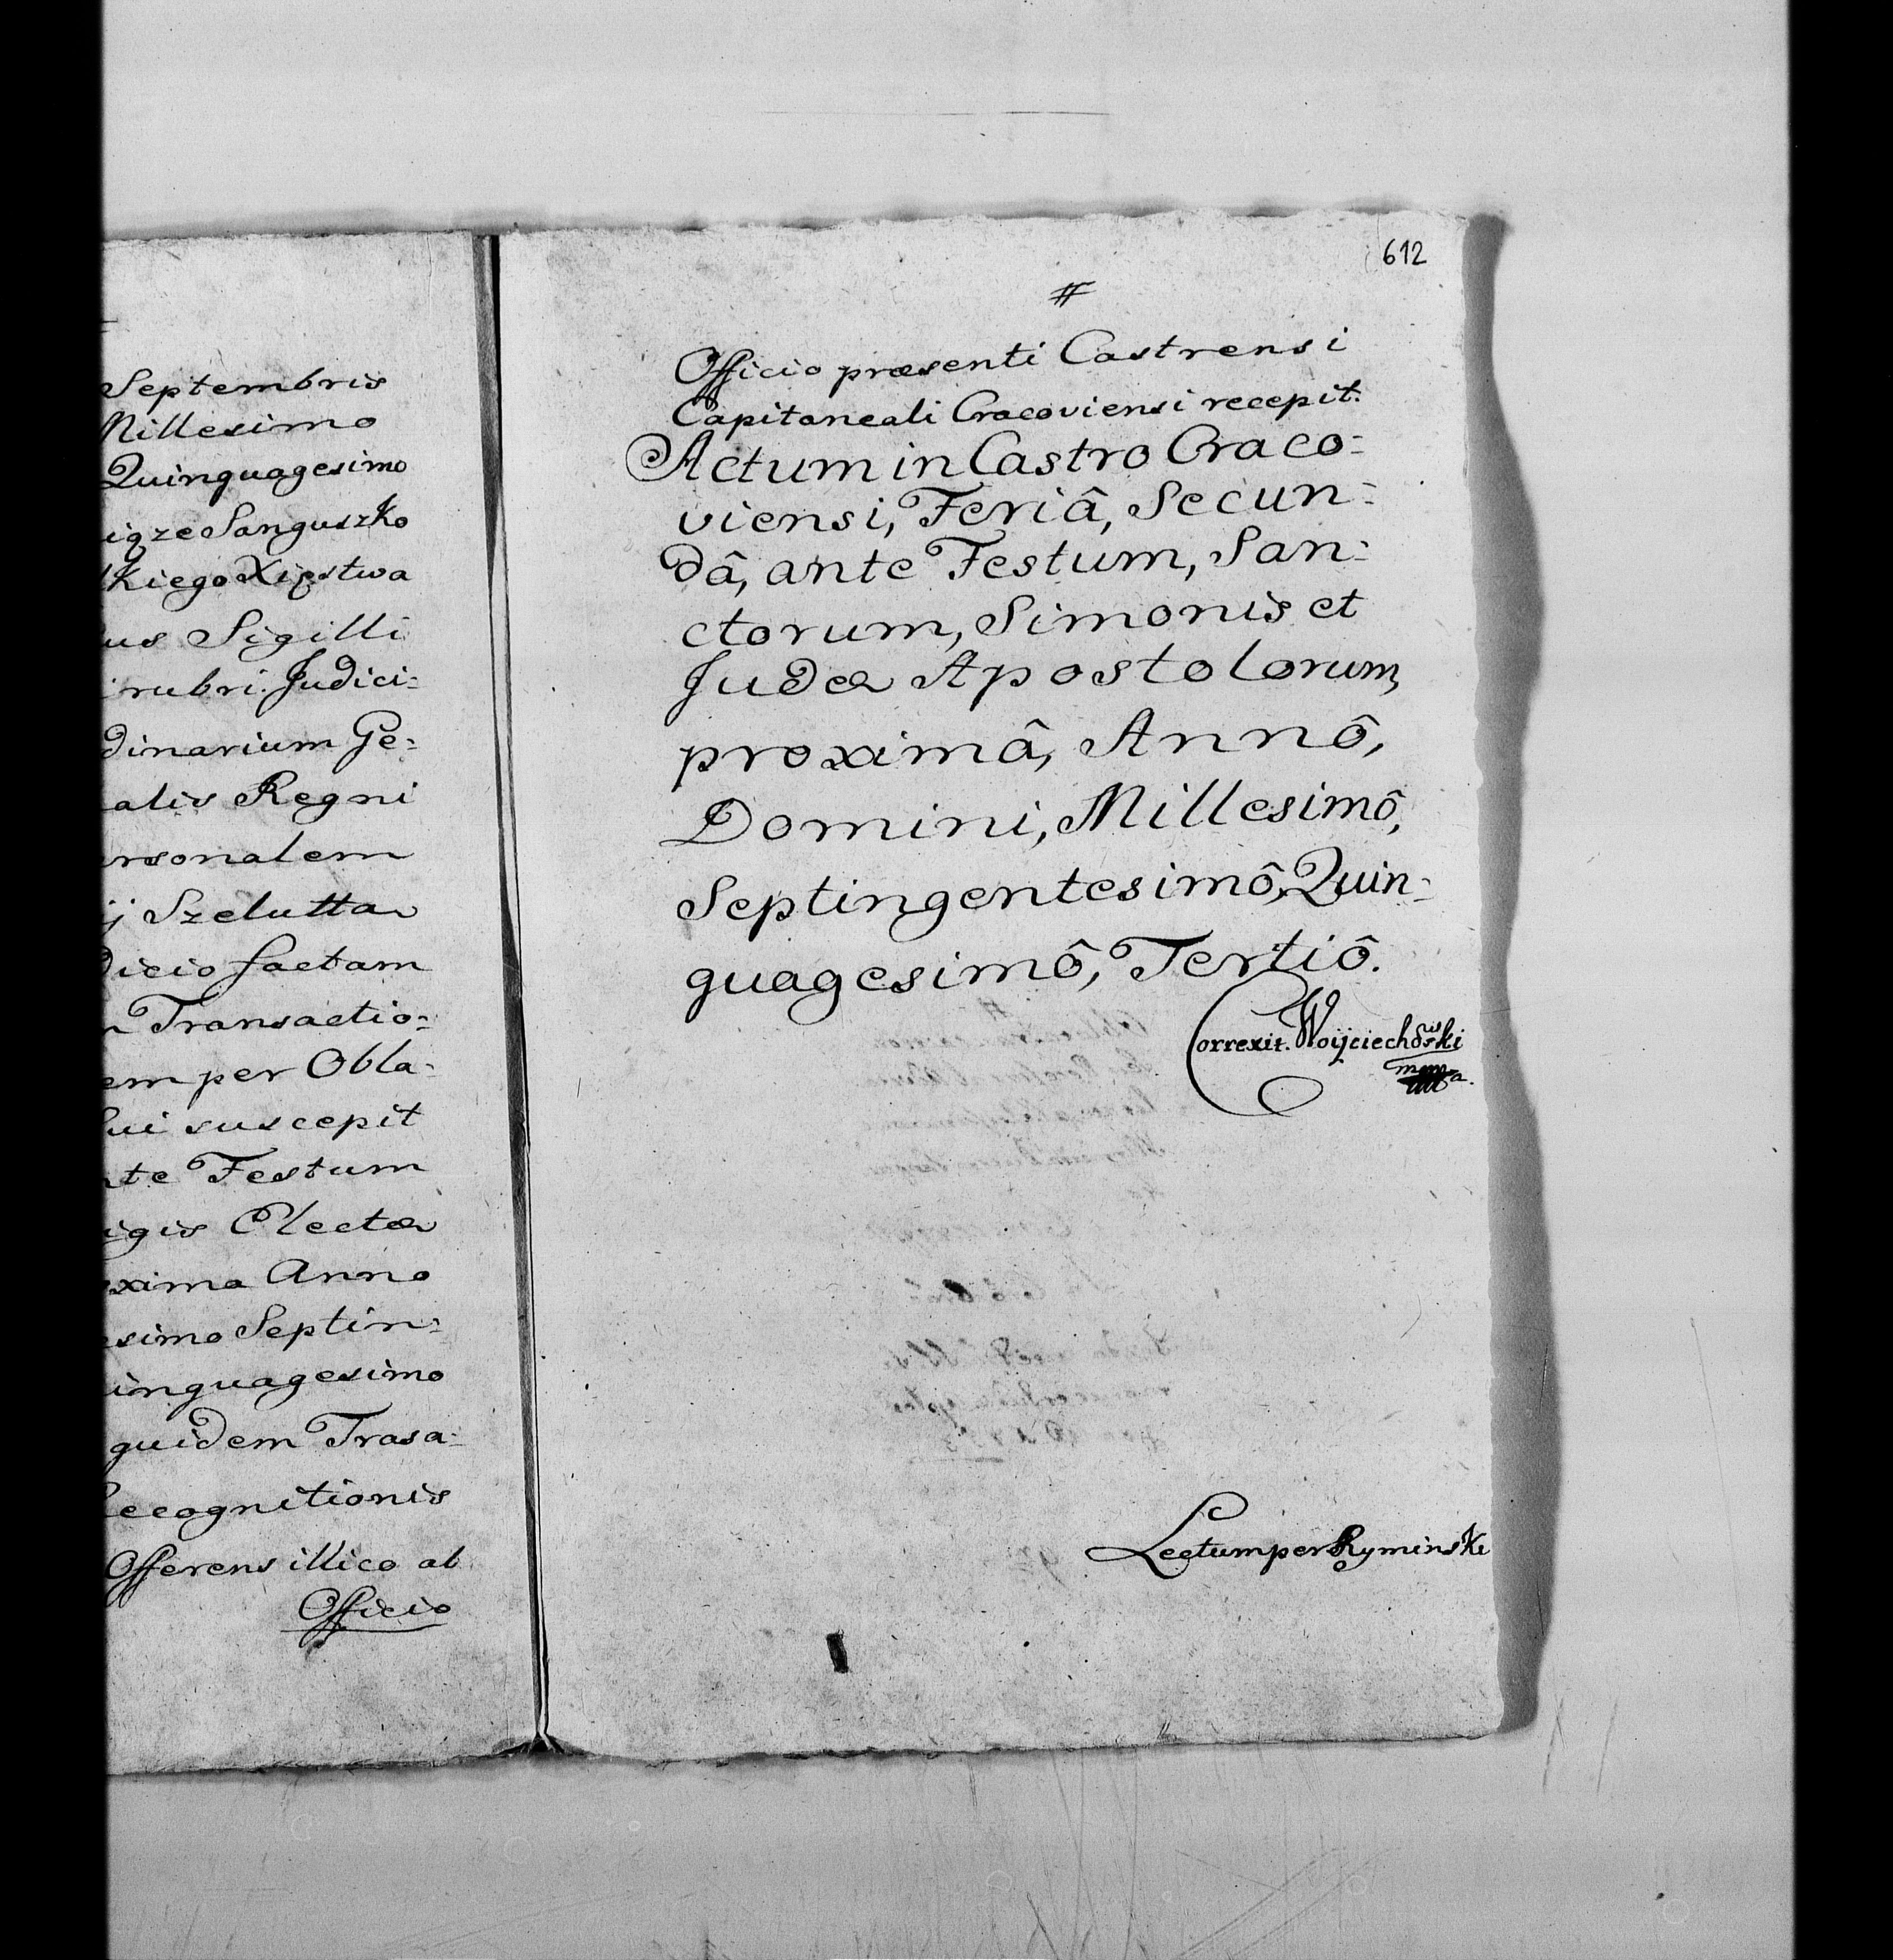 Septembris
Millesimo
Quinquagesimo
iąze Sanguszko
lkiego Xięstwa
us Sigilli
rubri. Judici:
dinarium Ge:
alis Regni
ersonalem
ij Szelutta
dicio factam
n Transactio:
em per Obla:
lui suscepit
nte Festum
igis Electæ
oxima Anno
esimo Septin:
uinquagesimo
quidem Trasa:
Recognitionis
Offerens illico ab
Officio
612
#
Officio præsenti Castrensi
Capitaneali Cracoviensi recepit.
Actum in Castro Craco:
viensi, Feriâ, Secun:
dâ, ante Festum, San:
ctorum, Simonis et
Judæ Apostolorum,
proximâ, Annô,
Domini, Millesimô,
Septingentesimô, Quin:
quagesimô, Tertiô.
Correxit. Woijciechowski
mppa.
Lectum per Ryminski